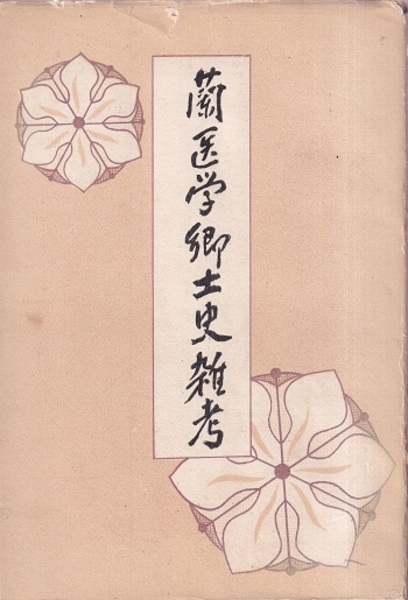 蘭医学郷土史雑考